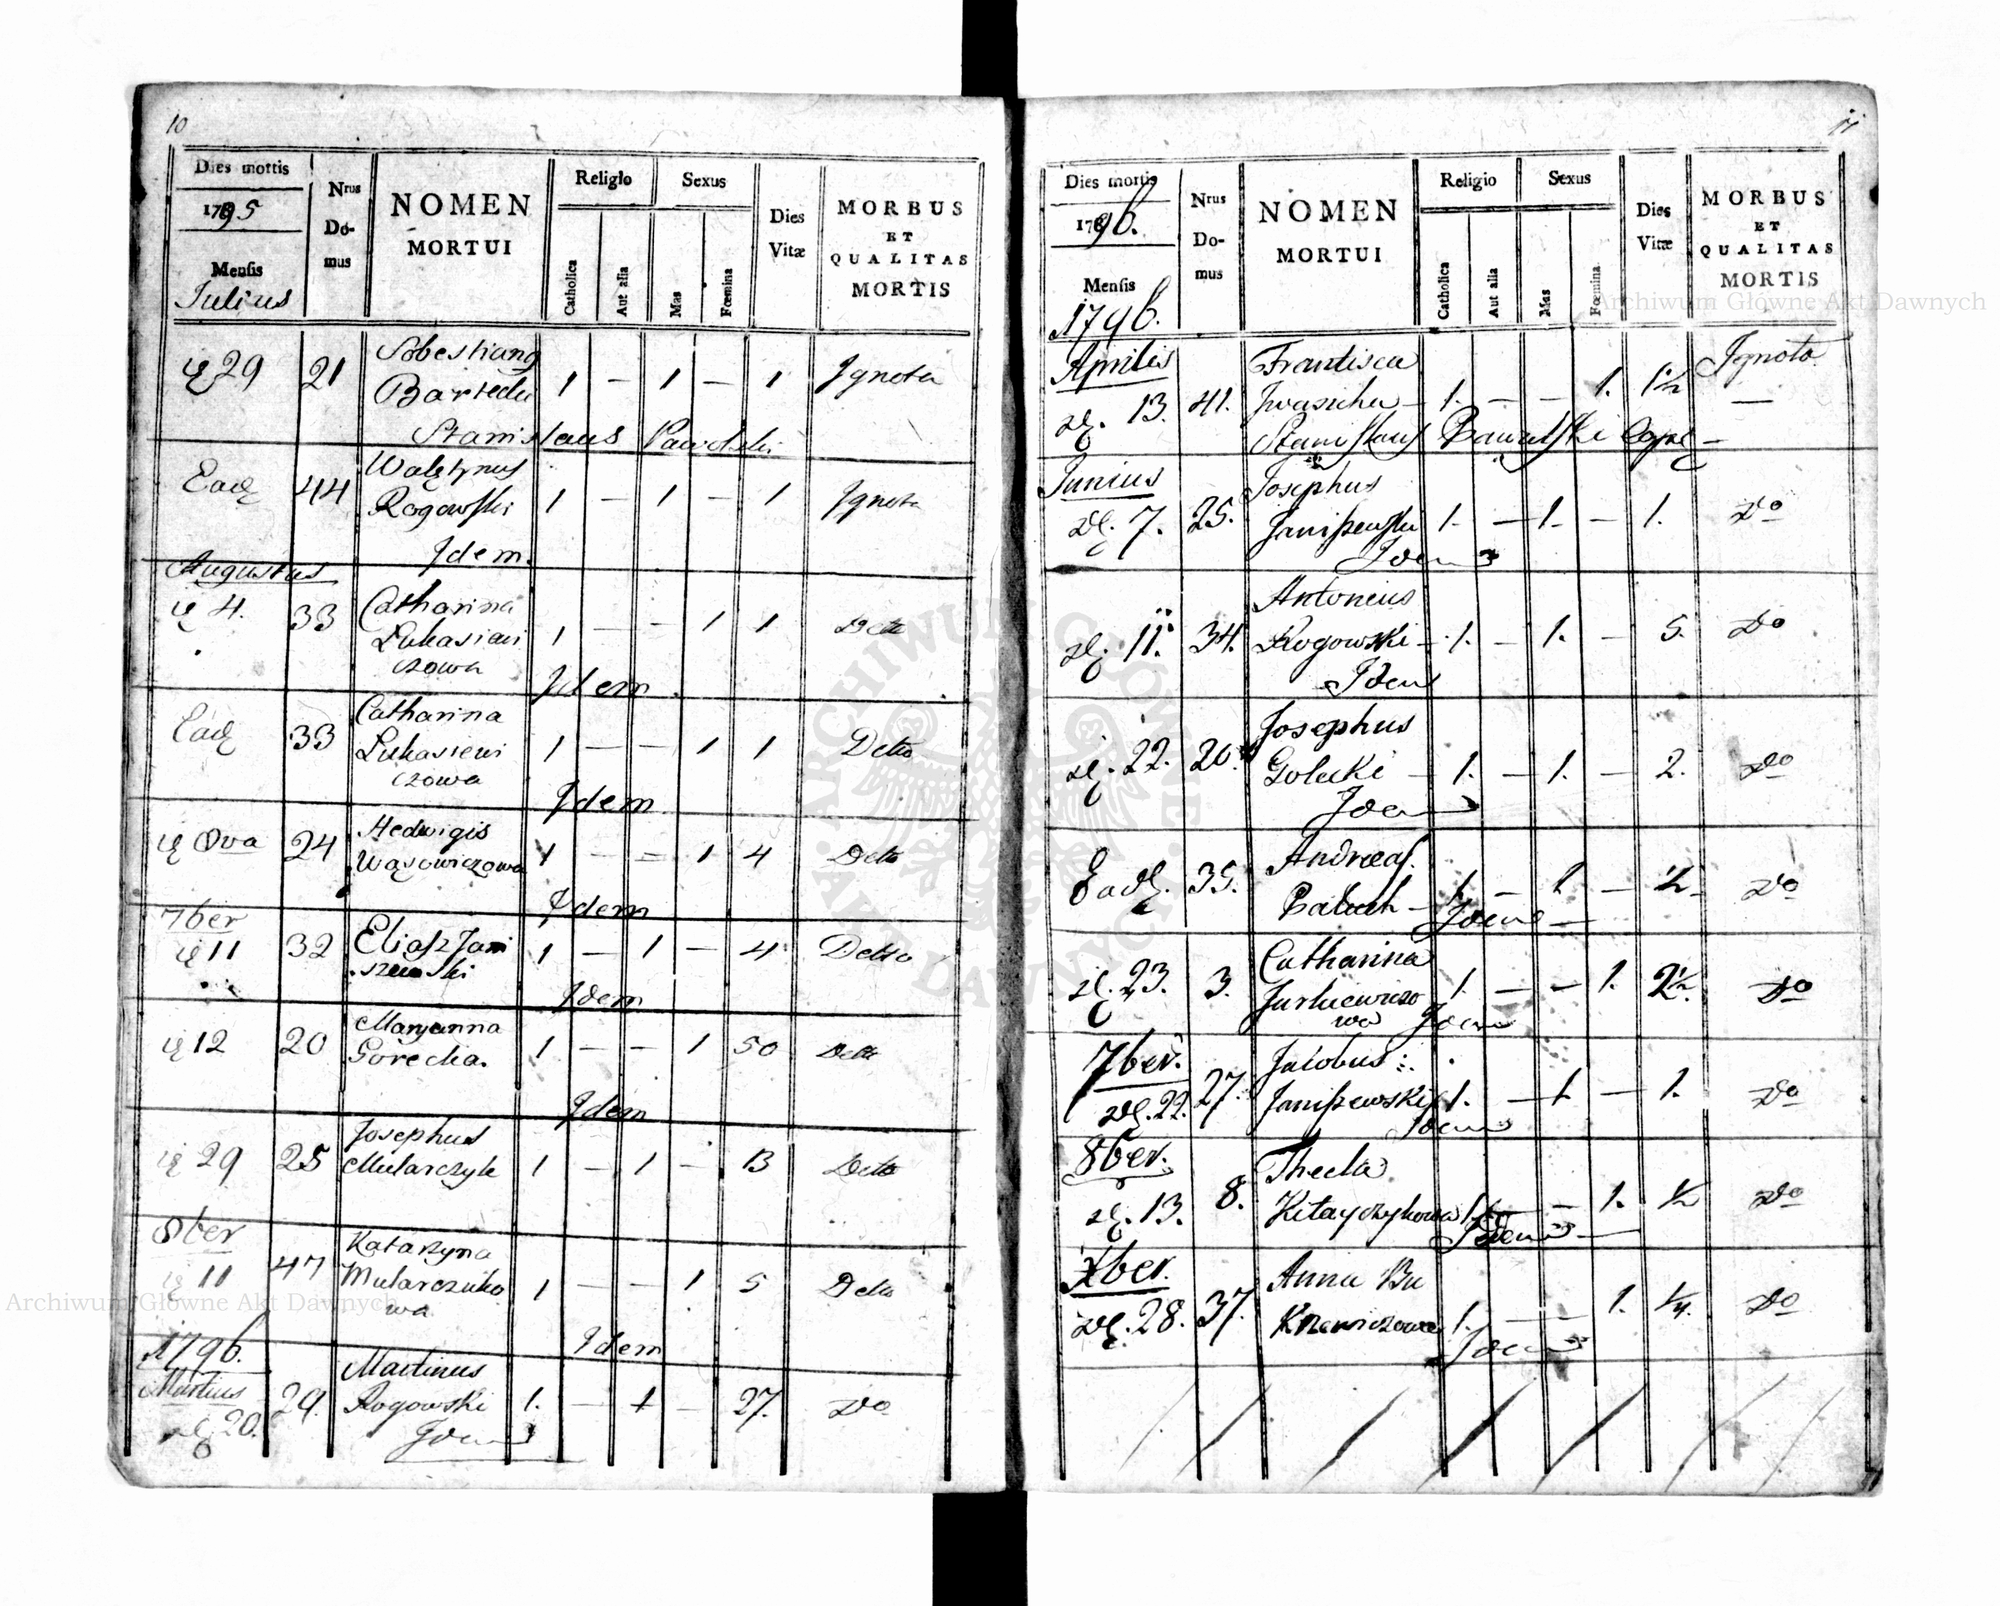 10
Dies mortis
1795
Mensis
Julius
Nrus
Do-
mus
NOMEN
MORTUI
Religio
Catholica
Aut alia
Sexus
Mas
Fœmina
Dies
Vitæ
MORBUS
ET
QUALITAS
MORTIS
29 21 Sobestiang 1 — 1 — 1 Ignota
Stanislaus
Ead 44 Walętynus
Rogowski 1 — 1 — 1 Ignota
Idem.
Augustus
4. 33 Catharina
Lukasiewi 1 — — 1 1 Detto
czowa
Idem
Ead 33 Catharina
Lukasiewi 1 — — 1 1 Detto
czowa
Idem
8va 24 Hedwigis
Wąsowiczowa 1 — — 1 4 Detto
Idem
7ber
11 32 Eliasz Jani 1 — 1 — 4 Detto
szewski
Idem
12 20 Maryanna
Gorecka. 1 — — 1 50 Detto
Idem
29 25 Josephus
Mularczyk 1 — 1 — 13 Detto
8ber
11 47 Katarzyna
Mularczyko 1 — — 1 5 Detto
wa
Idem
1796.
Martius
20. 29. Martinus
Rogowski 1. — 1 — 27. Do
Idem
11
Dies mortis
1796.
Mensis
1796.
Nrus
Do-
mus
NOMEN
MORTUI
Religio
Catholica
Aut alia
Sexus
Mas
Fœmina
Dies
Vitæ
MORBUS
ET
QUALITAS
MORTIS
Aprilis
13. 41. Francisca 1. — — 1. 1½ Ignota
Stanislaus
Junius
7. 25. Josephus
Janiszewski 1. — 1. — 1. Do
Idem
11. 34. Antonius
Rogowski — 1. — 1. — 5. Do
Idem
22. 20. Josephus
Golecki — 1. — 1. — 2. Do
Idem
Ead. 35. Andreas
1. — 1 — ½ Do
Idem
23. 3. Catharina
Jurkiewiczo 1. — — 1. 2½. Do
wa Idem
7ber.
22. 27. Jacobus
Janiszewski 1. — 1. — 1. Do
Idem
8ber.
13. 8. Thecla
Kitayczykowa 1. — — 1. ½ Do
Idem
Xber.
28. 37. Anna
1. — — 1. ¼. Do
Idem
Archiwum Główne Akt Dawnych
Archiwum Główne Akt Dawnych
ARCHIWUM GŁÓWNE
AKT DAWNYCH